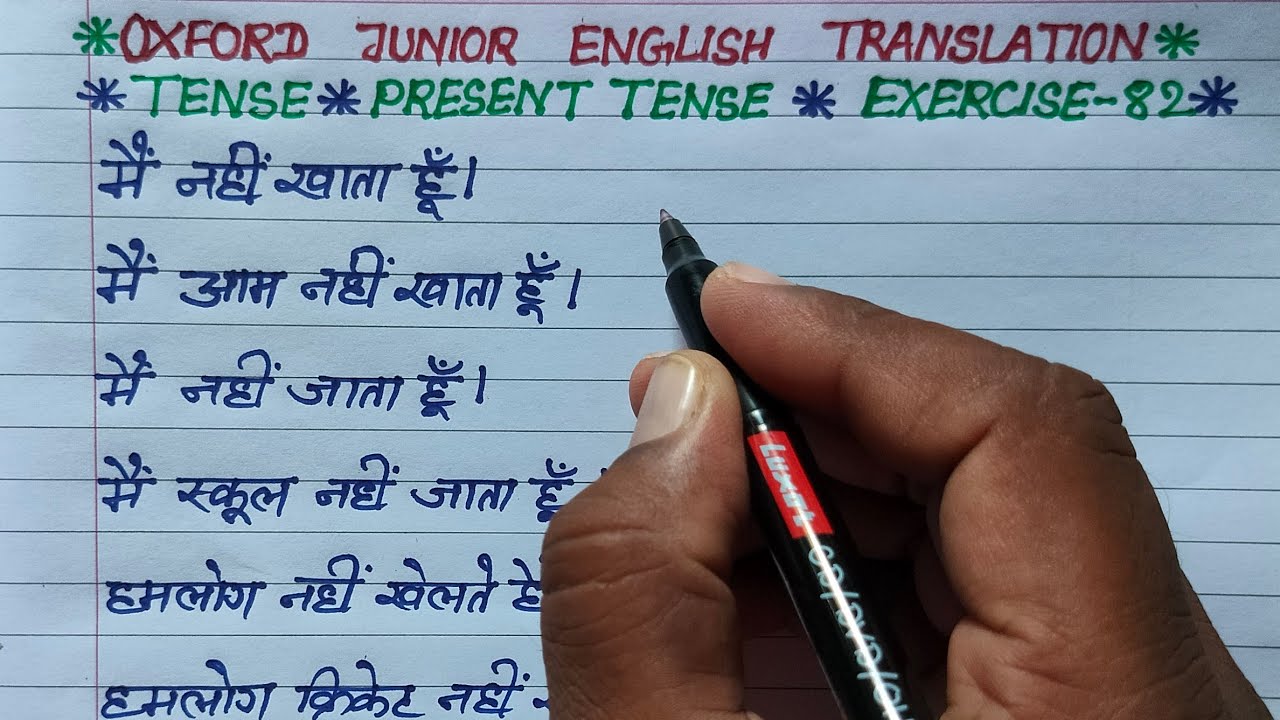 *OXFORD JUNIOR ENGLISH TRANSLATION*
*TENSE*PRESENT TENSE * EXERCISE-82*
मैं नहीं खाता हूँ।
मैं आम नहीं खाता हूँ।
मैं नहीं जाता हूँ।
मैं स्कूल नहीं जाता हूँ
हमलोग नहीं खेलते
हमलोग क्रिकेट नहीं
Luxor